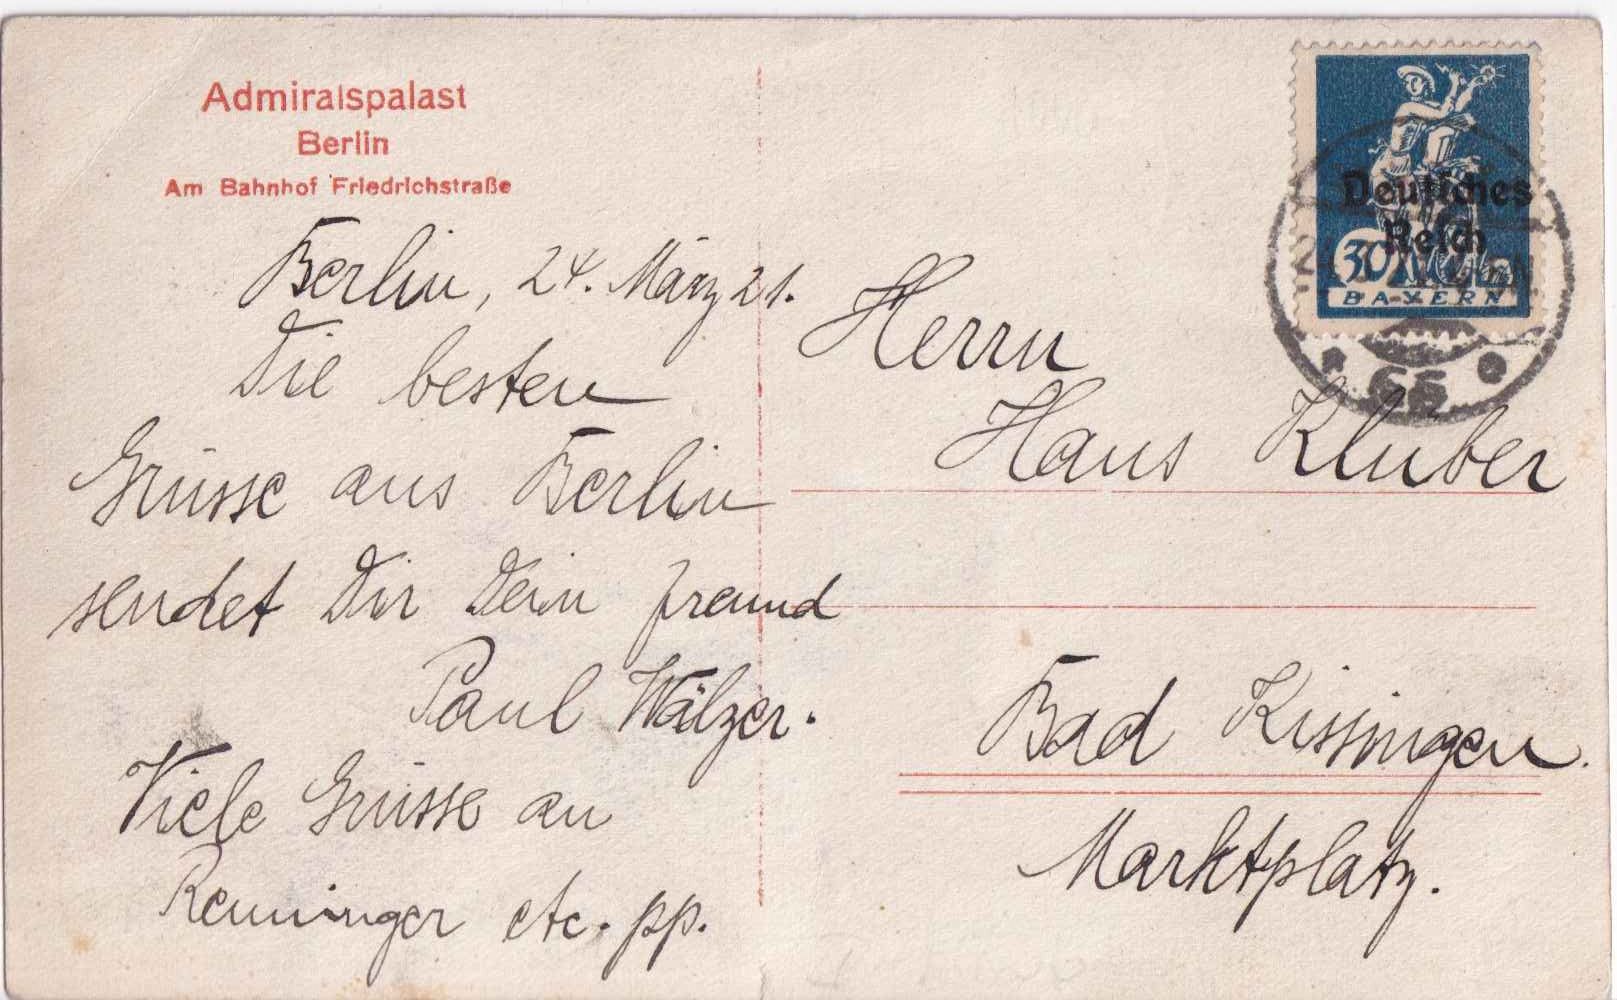 Admiralspalast
Berlin
Am Bahnhof Friedrichstraße
Berlin, 24. März 21.
Die besten
Grüsse aus Berlin
sendet Dir Dein freund
Paul Wälzer.
Viele Grüsse an
Renninger etc. pp.
Deutsches
Reich
30
BAYERN
66
Herrn
Hans Klüber
Bad Kissingen.
Marktplatz.